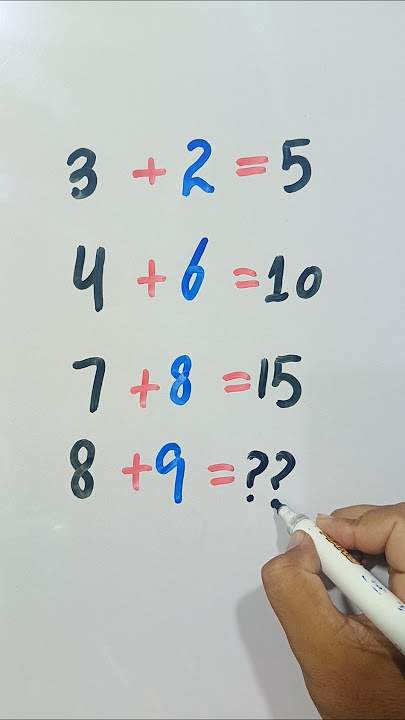 3 + 2 = 5
4 + 6 = 10
7 + 8 = 15
8 + 9 = ??